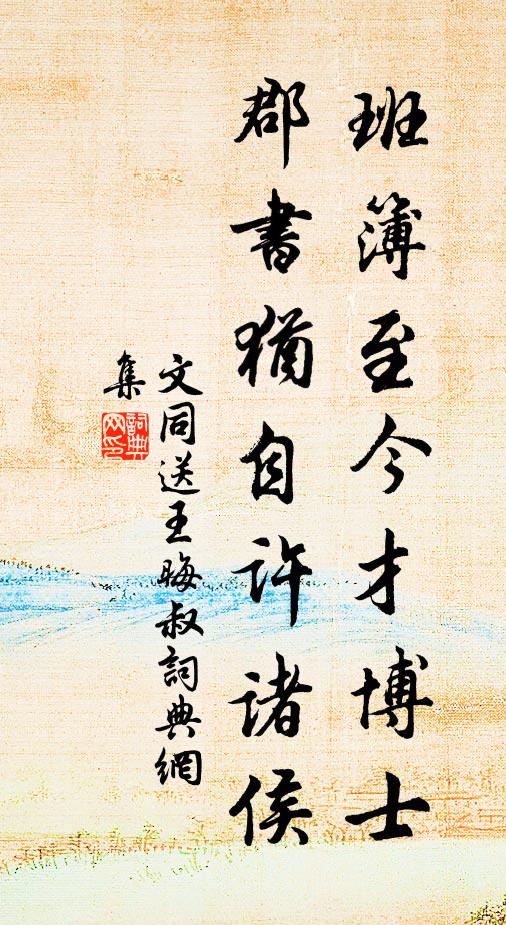 班簿至今才博士
郡書猶自許諸侯
文同送王晦叔詞典網
集
詞典
网印